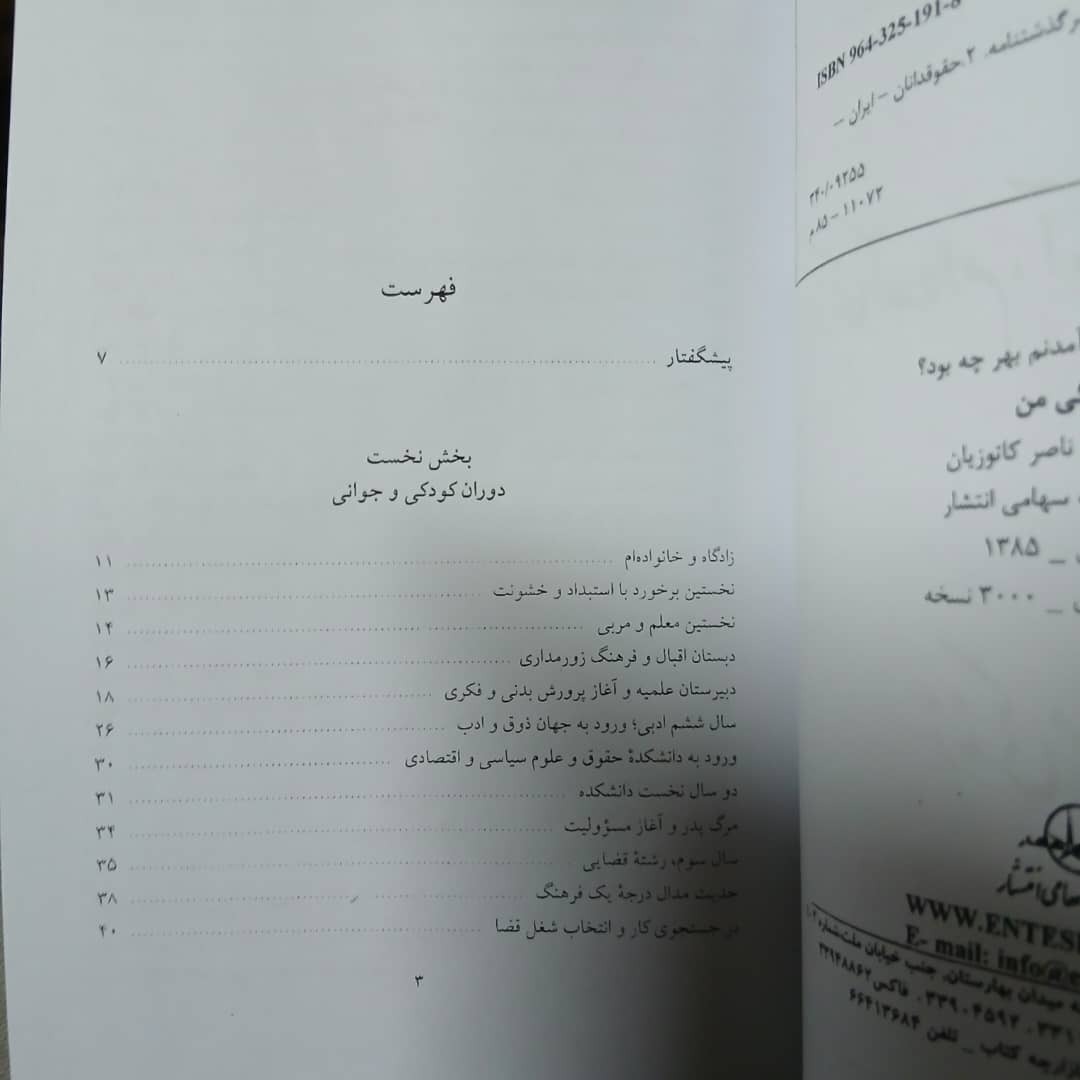 ISBN 964-325-191-8
۲.حقوقدانان – ایران –
۳۴۰/۰۹۲۵۵
۸۵–۱۱۰۷۲ م
بهر چه بود؟
من
ناصر کاتوزیان
سهامی انتشار
۱۳۸۵
۳۰۰۰ نسخه
انتشار
WWW.ENTES
E- mail: info@e
میدان بهارستان، جنب خیابان ملت شماره ۱۰۲
۳۳۹۰۴۵۹۲ . فاکس ۳۳۹۴۸۸۶۲
کتاب _ تلفن ۶۶۴۱۳۶۸۴
فهرست
پیشگفتار ۷
بخش نخست
دوران کودکی و جوانی
زادگاه و خانواده‌ام ۱۱
نخستین برخورد با استبداد و خشونت ۱۳
نخستین معلم و مربی ۱۴
دبستان اقبال و فرهنگ زورمداری ۱۶
دبیرستان علمیه و آغاز پرورش بدنی و فکری ۱۸
سال ششم ادبی؛ ورود به جهان ذوق و ادب ۲۶
ورود به دانشکدهٔ حقوق و علوم سیاسی و اقتصادی ۳۰
دو سال نخست دانشکده ۳۱
مرگ پدر و آغاز مسؤولیت ۳۴
سال سوم، رشتهٔ قضایی ۳۵
حدیث مدال درجهٔ یک فرهنگ ۳۸
در جستجوی کار و انتخاب شغل قضا ۴۰
۳